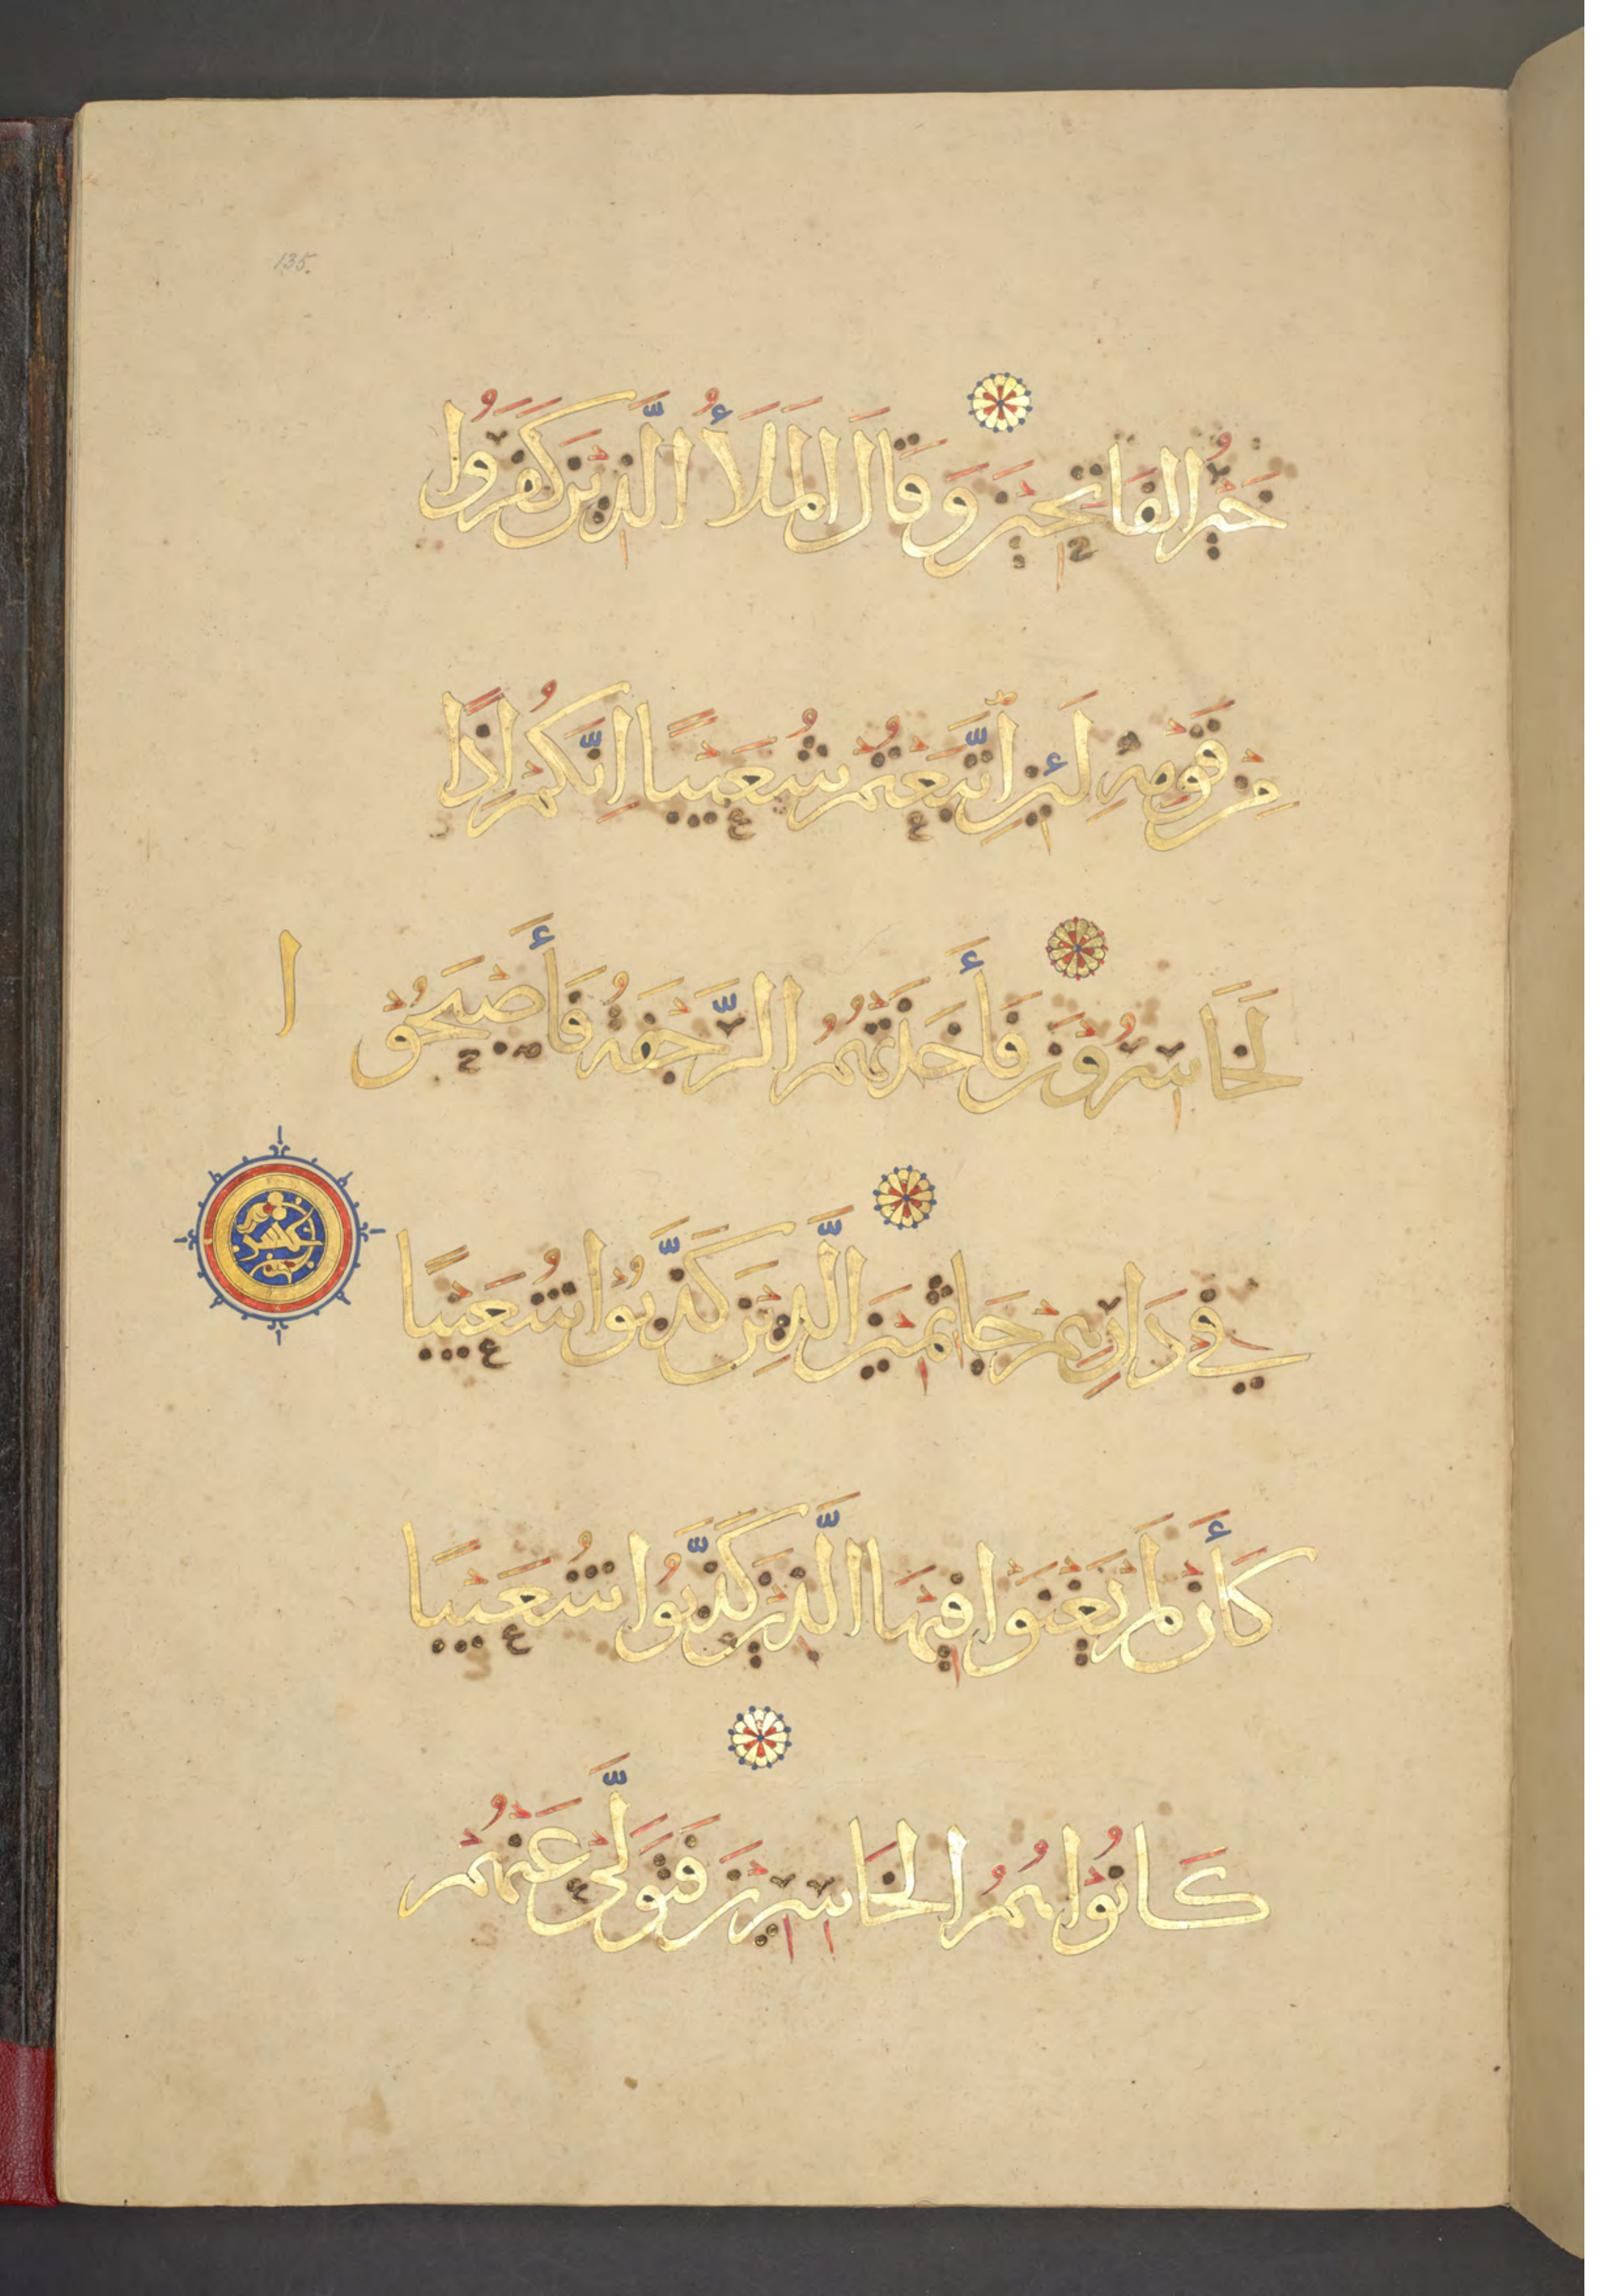 135.
خَيْرُ الفَاتِحِيْنَ وَقَالَ المَلَأُ الَّذِيْنَ كَفَرُوا
مِنْ قَوْمِهِ لَئِنِ اتَّبَعْتُمْ شُعَيْبًا اِنَّكُمْ اِذًا
لَخَاسِرُوْنَ فَأَخَذَتْهُمُ الرَّجْفَةُ فَأَصْبَحُوْا
فِي دَارِهِمْ جَاثِمِيْنَ الَّذِيْنَ كَذَّبُوْا شُعَيْبًا
كَأَنْ لَمْ يَغْنَوْا فِيْهَا الَّذِيْنَ كَذَّبُوا شُعَيْبًا
كَانُوْا هُمُ الخَاسِرِيْنَ فَتَوَلَّىْ عَنْهُمْ